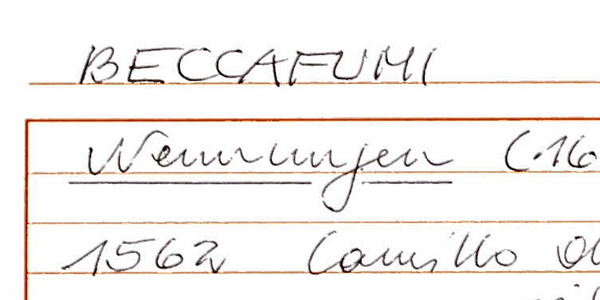 BECCAFUMI
Nennungen (.16
1562 Camillo